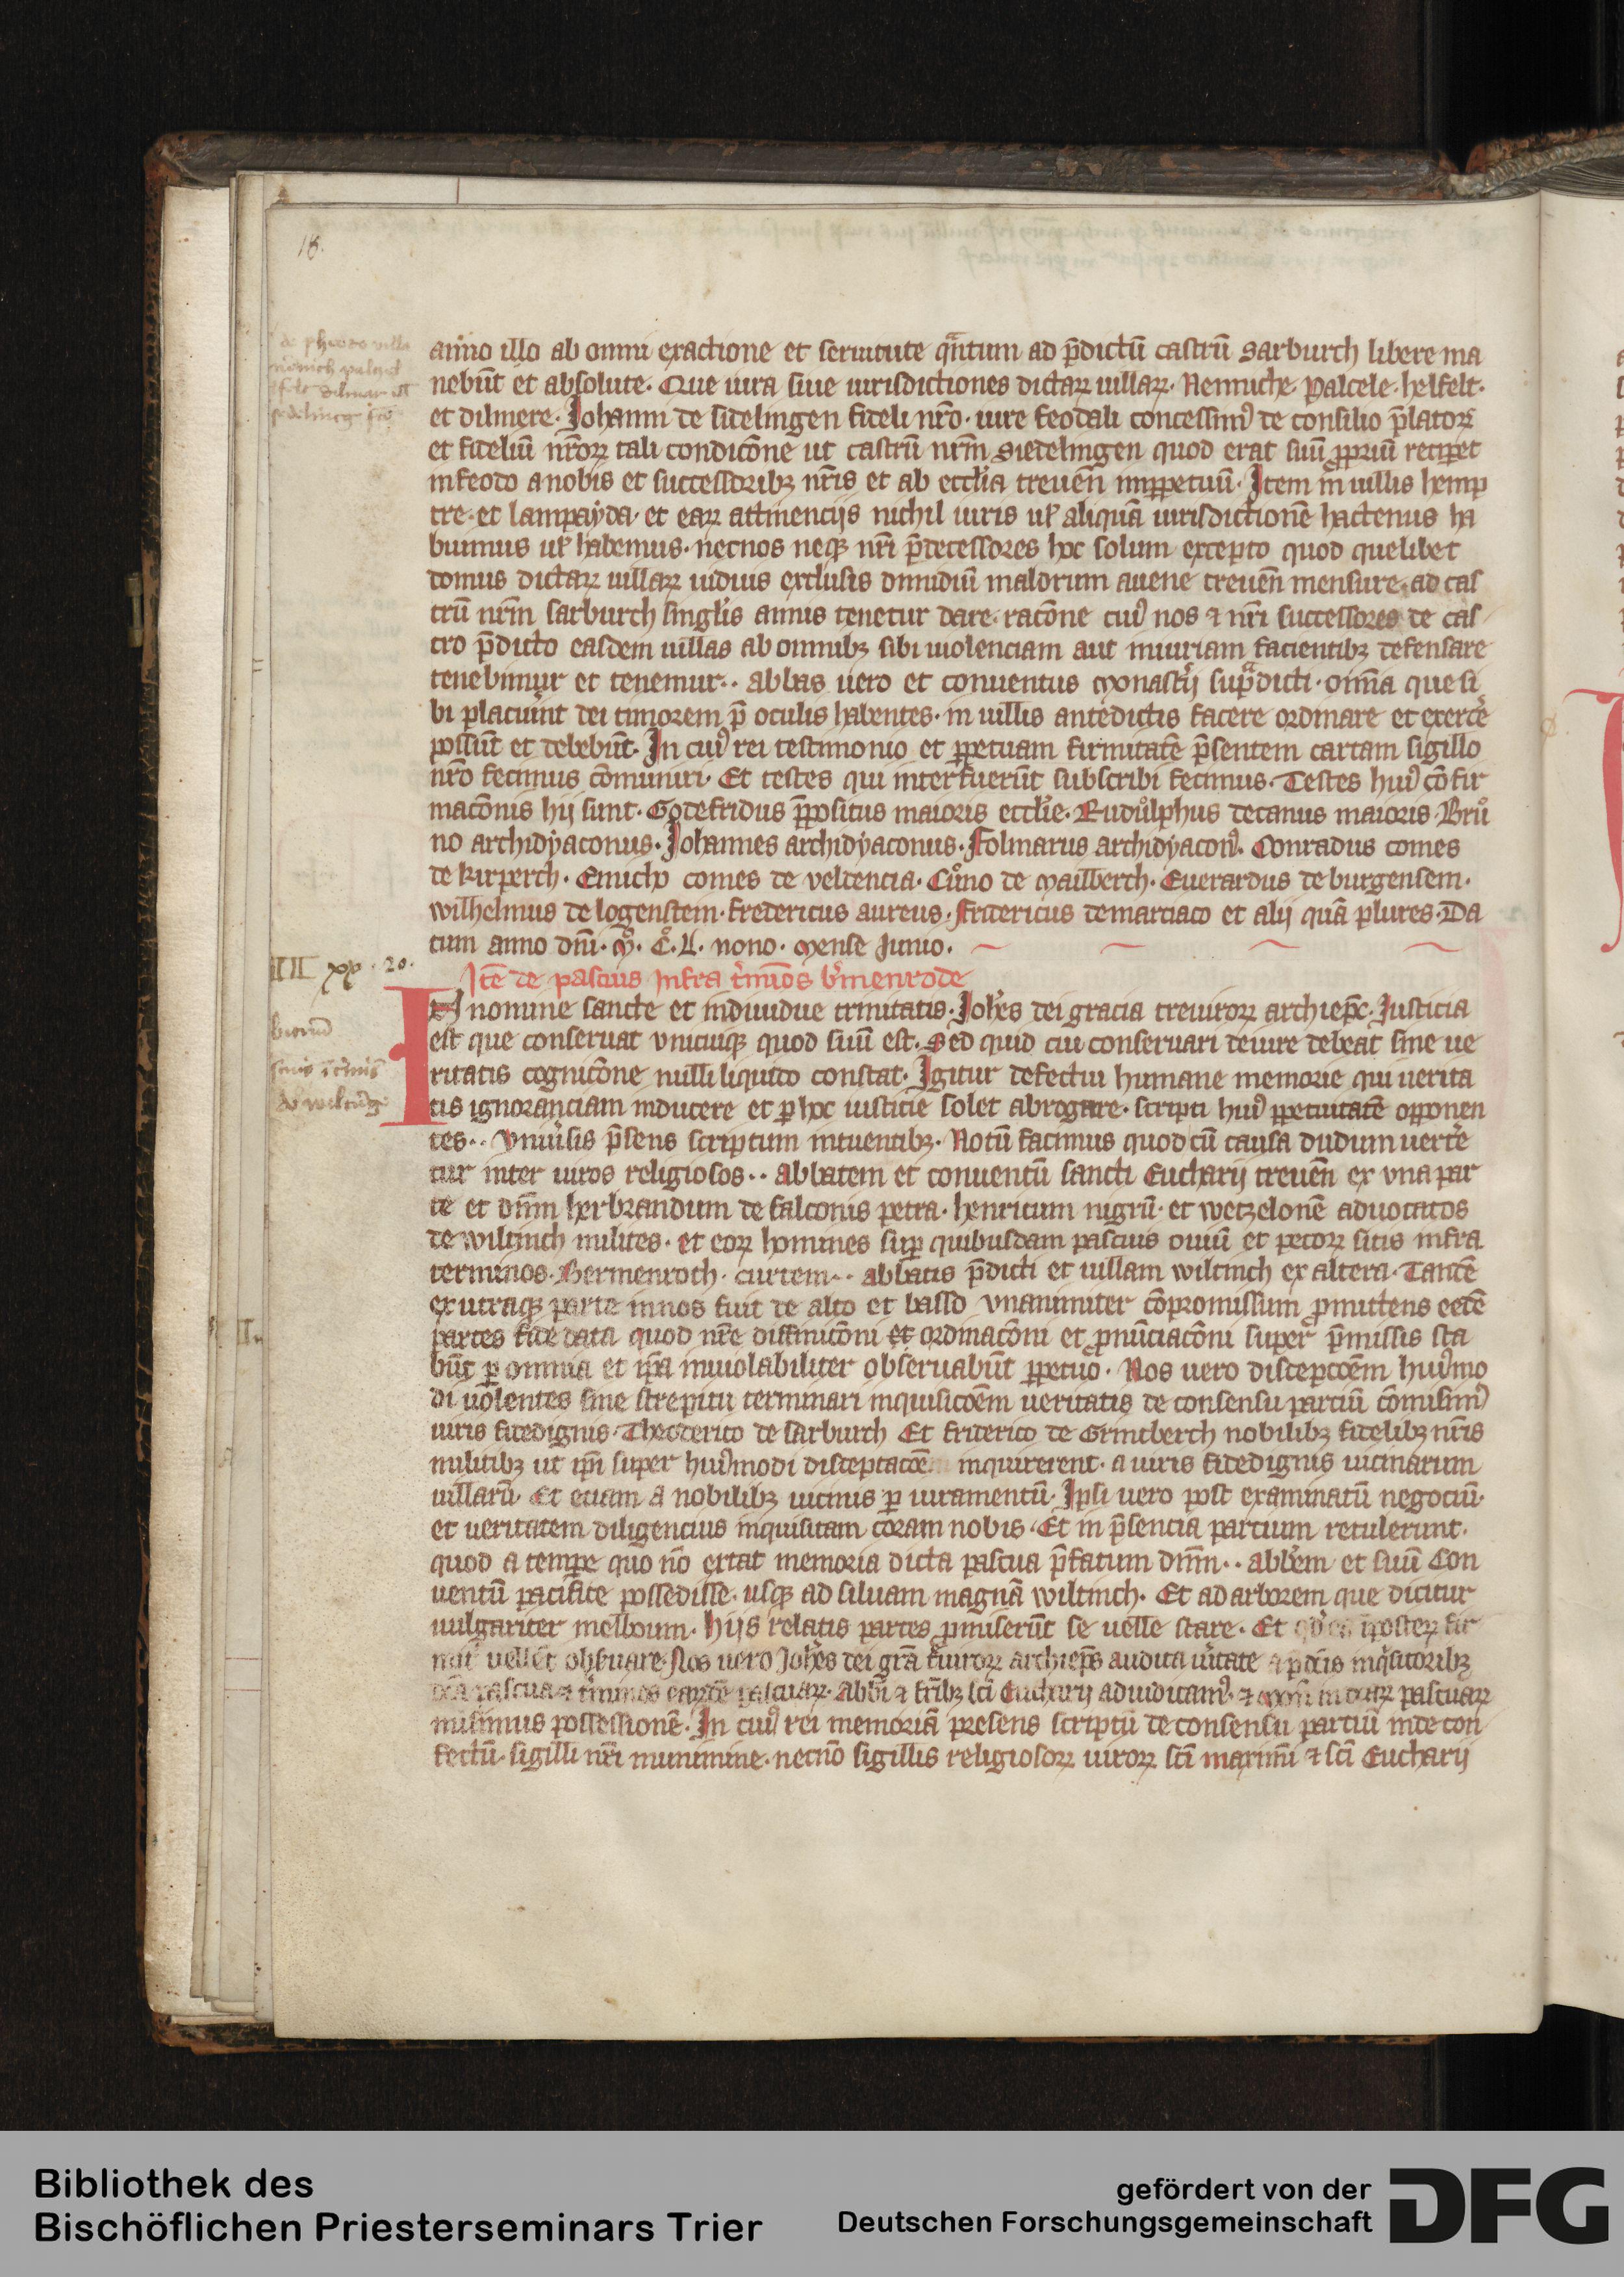 18.
anno illo ab omni exactione et seruitute qͣntum ad p̄dictū castrū Sarburch libere ma
nebūt et absolute. Que iura siue iurisdictiones dictaꝝ uillaꝝ. Nenniche. Palcele. helfelt.
et dilmere. Johanni de sidelingen fideli nr̄o. iure feodali concessimꝰ de consilio p̄latoꝝ
et fideliū nr̄oꝝ tali condicōne ut castrū nr̄m Siedelingen quod erat suū ꝓpriū reciꝑet
in feodo a nobis et successoribꝫ nr̄is et ab eccl'ia treuēn inꝑpetuū. Item in uillis hemp
tre. et lampayda. et eaꝝ attinencijs nichil iuris uꝉ aliquā iurisdictionē hactenus ha
buimus uꝉ habemus. nec nos neqꝫ nr̄i p̄decessores hoc solum excepto quod quelibet
domus dictaꝝ uillaꝝ uiduis exclusis dimidiū maldrum auene treuēn mensure. ad cas
trū nr̄m sarburch singl'is annis tenetur dare. racōne cuiꝰ nos ⁊ nr̄i successores de cas
tro p̄dicto easdem uillas ab omnibꝫ sibi uiolenciam aut iniuriam facientibꝫ defensare
tenebimur et tenemur.. abbas uero et conuentus monast'ij supͣdicti. omīa que si
bi placuīnt dei timorem p̄ oculis habentes. in uillis antedictis facere ordinare et exerce'
possūt et debebūt. In cuiꝰ rei testimonio et ꝑpetuam firmitatē p̄sentem cartam sigillo
nr̄o fecimus cōmuniri. Et testes qui interfuerūt subscribi fecimus. Testes huiꝰ cōfir
macōnis hij sunt. Godefridus p̄positus maioris eccl'ie. Rudůlphus decanus maioris. Brů
no archidyaconus. Johannes archidyaconus. Folmarus archidyaconꝰ. Conradus comes
de kirperch. Emicho comes de veldencia. Cůno de mailberch. Euerardus de burgensem.
wilhelmus de logenstem. fredericus aureus. Fridericus de marciaco et alij quā plures. Da
tum anno dn̄i. mͦ. cͦ. L. nono. mense Junio.
II xx. 20.
Itē de pascuis infra t'minos b'menrode
In nomine sancte et indiuidue trinitatis. Joh'es dei gracia treuiroꝝ archiep̄c. Justicia
est que conseruat vnicuiqꝫ quod suū est. Sed quid cui conseruari de iure debeat sine ue
ritatis cognicōne nulli liquido constat. Igitur defectui humane memorie qui uerita
tis ignoranciam inducere et ꝑ hoc iusticie solet abrogare. scripti huiꝰ ꝑpetuitatē opponen
tes.. vniu'sis p̄sens scriptum intuentibꝫ. Notū facimus quod cū causa dudum uerte'
tur inter uiros religiosos.. abbatem et conuentū sancti Eucharij treuēn ex vna par
te et dn̄m herbrandum de falconis petra. henricum nigrū. et wetzelonē aduocatos
de wiltinch milites. et eoꝝ homines suꝑ quibusdam pascuis ouiū et pecoꝝ sitis infra
terminos. Bermenroth. curtem.. abbatis p̄dicti et uillam wiltinch ex altera. Tandē
ex utraqꝫ parte in nos fuit de alto et basso vnanimiter cōpromissum ꝓmittens eedē
partes fide data quod nr̄e diffinicōni et ordinacōni et ꝓnūciacōni super p̄missis sta
būt ꝑ omnia et ip̄a inuiolabiliter obseruabūt ꝑpetuo. Nos uero disceptcōem huiꝰmo
di uolentes sine strepitu terminari inquisicōem ueritatis de consensu partiū cōmisimꝰ
uiris fidedignis. Theoderico de sarburch Et friderico de Grintberch nobilibꝫ fidelibꝫ nr̄is
militibꝫ ut ip̄i super huiꝰmodi disceptacōe inquirerent. a uiris fidedignis uicinarum
uillarū. Et etiam a nobilibꝫ uicinis ꝑ iuramentū. Ipsi uero post examinatū negociū.
et ueritatem diligencius inquisitam coram nobis. Et in p̄sencia partium retulerunt.
quod a tempe quo nō extat memoria dicta pascua p̄fatum dn̄m.. abb'em et suū Con
uentū pacifice possedisse. usqꝫ ad siluam magnā wiltinch. Et ad arborem que dicitur
uulgariter melboum. Hijs relatis partes ꝓmiserūt se uelle stare. Et
uellet obs'uare. Nos uero Joh'es dei grā t'uiroꝝ archiep̄s audita u'itate a p̄dc̄is inq'sitoribꝫ
pascua ⁊ t'minos pascuaꝝ. abb'i ⁊ fr̄ibꝫ sc̄i Eucharij adiudicamꝰ. ⁊ pascuaꝝ
misimus possessionē. In cuiꝰ rei memoriā presens scriptū de consensu partiū inde con
fectū. sigilli nr̄i munimine. necnō sigillis religiosoꝝ uiroꝝ sc̄i maximi ⁊ sc̄i Eucharij
Bibliothek des
Bischöflichen Priesterseminars Trier
gefördert von der
Deutschen Forschungsgemeinschaft
DFG